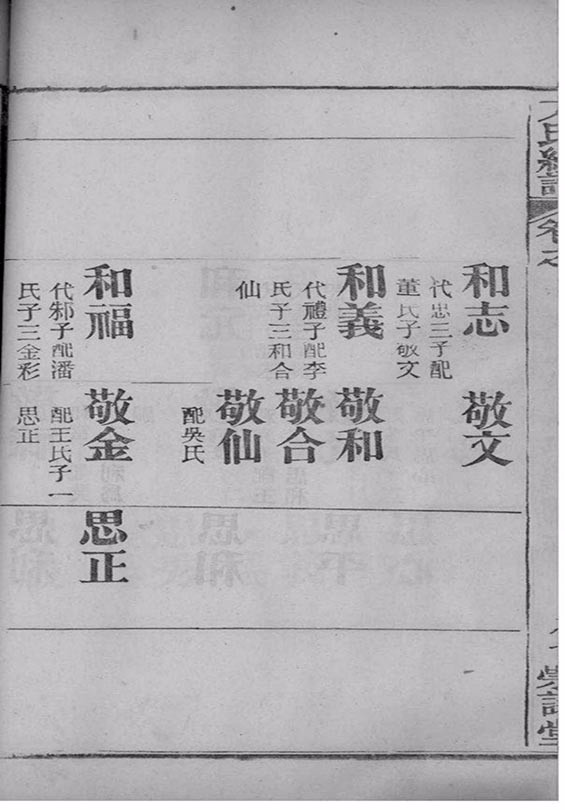 氏總譜
卷之
崇譜堂
和志
代忠三子配
董氏子敬文
敬文
和義
代禮子配李
氏子三和合
仙
敬和
敬合
敬仙
配吳氏
和福
代邾子配潘
氏子三金彩
敬金
配王氏子一
思正
思正